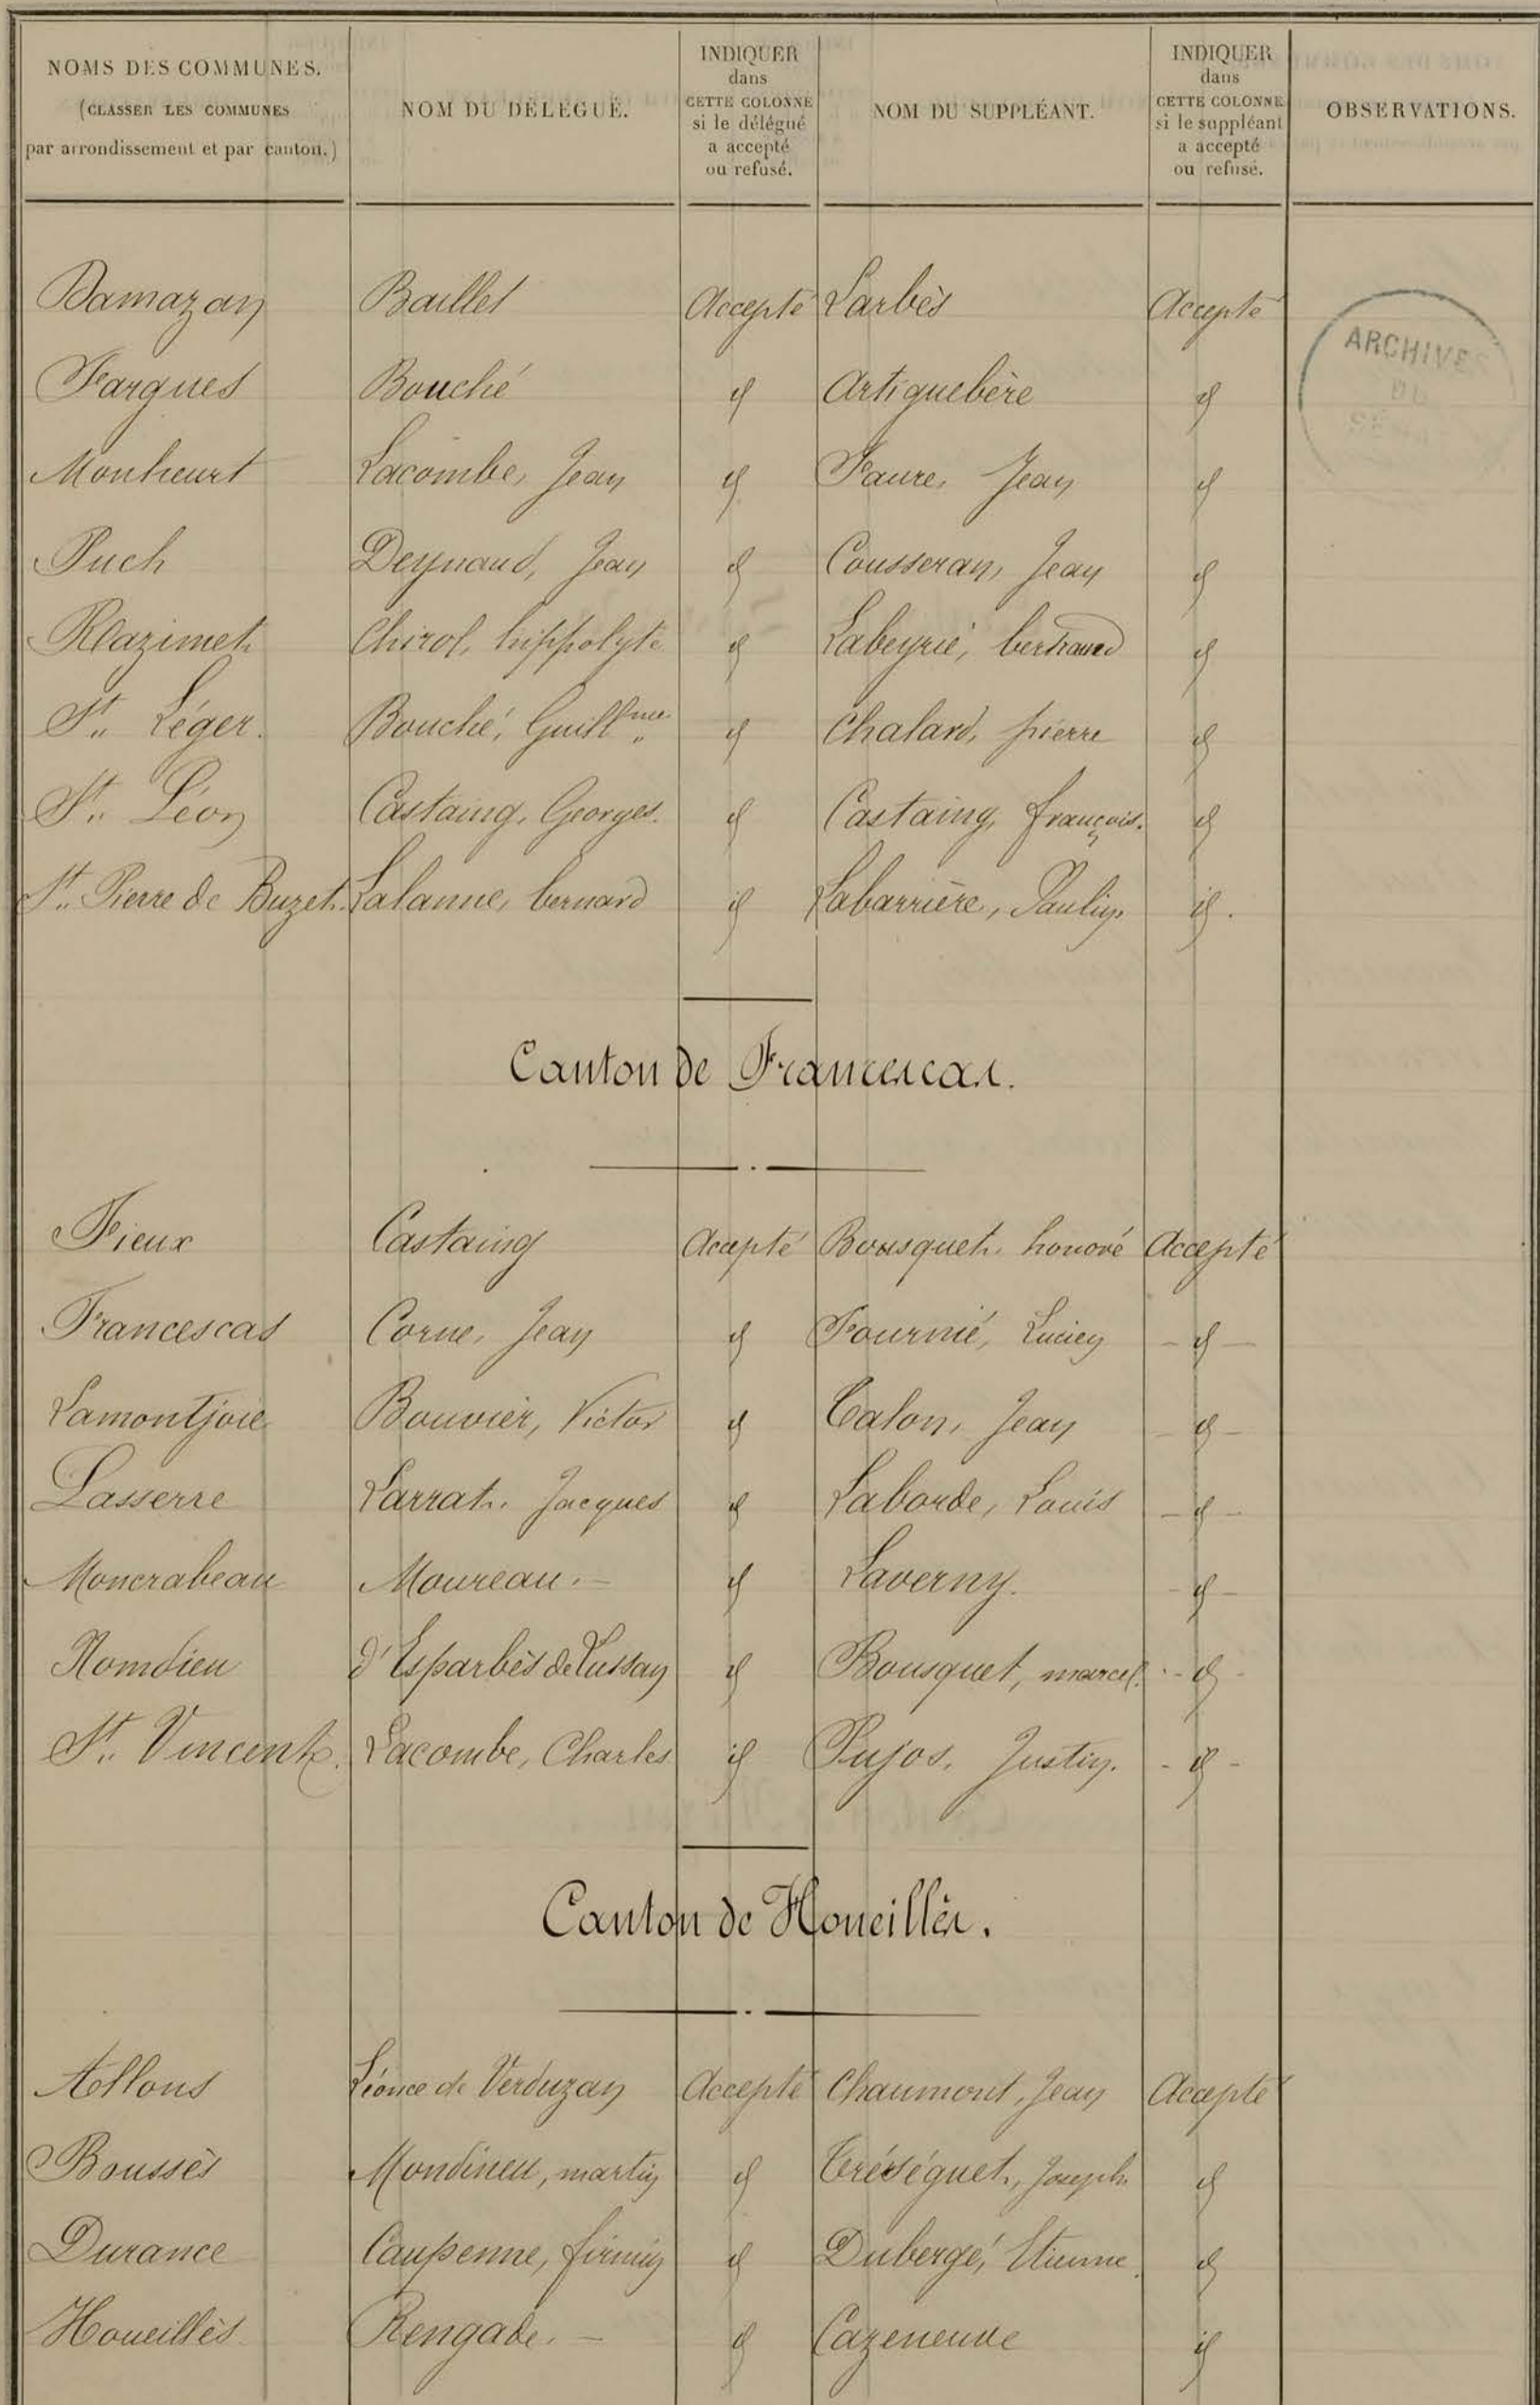 NOMS DES COMMUNES. (CLASSER LES COMMUNES par arrondissement et par canton.) NOM DU DÉLÉGUÉ. INDIQUER dans CETTE COLONNE si le délégué a accepté ou refusé. NOM DU SUPPLÉANT. INDIQUER dans CETTE COLONNE si le suppléant a accepté ou refusé. OBSERVATIONS.
Damazan Baillet Accepté Larbès Accepté
ARCHIVES
DU
Fargues Bouché id Artiguebère id
Monheurt Lacombe, Jean id Faure, Jean id
Puch Deynaud, Jean id Cousseran, Jean id
Razimet Chirol, hippolyte id Labeyrie, bertrand id
St. Léger. Bouché, Guillme id Chalard, pierre id
St. Léon Castaing, Georges. id Castaing, françois. id
St. Pierre de Buzet. Lalanne, bernard id Labarrière, Paulin. id.
Canton de Francescas.
Fieux Castaing Accepté Bousquet, honoré Accepté
Francescas Corne, Jean id Fournié, Lucien - id -
Lamontjoie Bouvier, Victor id Talon, Jean - id -
Lasserre Larrat, Jacques id Laborde, Louis - id -
Moncrabeau Moureau. - id Laverny. - id -
Nomdieu d'Esparbès de Lussan id Bousquet, marcel. - id -
St. Vincent. Lacombe, Charles id Pujos, Justin. - id -
Canton de Houeillès.
Allons Léonce de Verduzan Accepté Chaumont, Jean Accepté
Boussès Mondineu, martin id Tréséguet, Joseph id
Durance Caupenne, firmin id Dubergé, Etienne id
Houeillès Rengade. - id Cazeneuve id